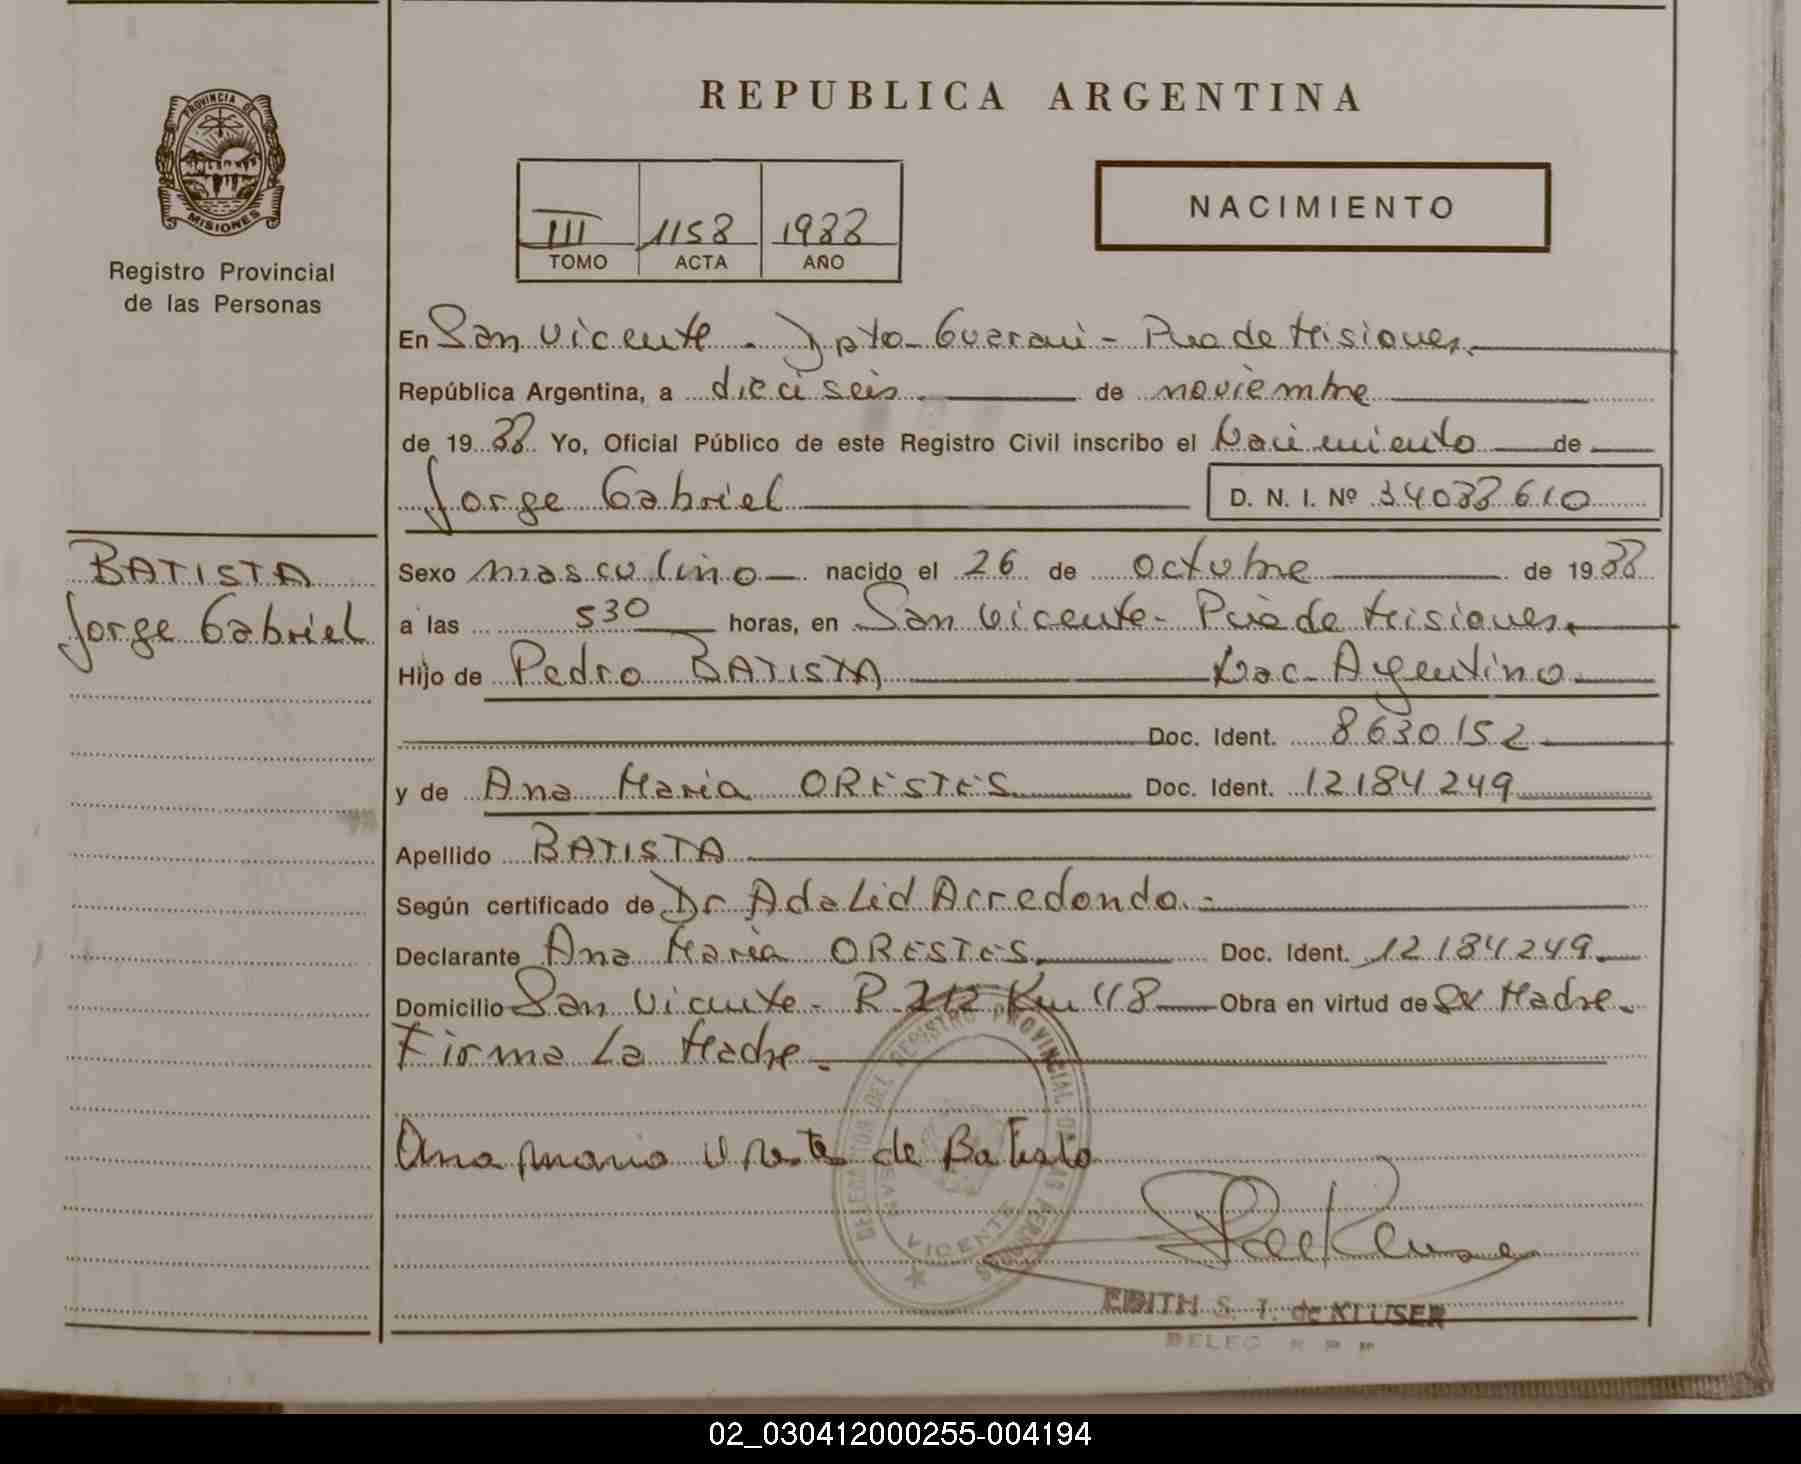 REPUBLICA ARGENTINA
PROVINCIA DE
MISIONES
Registro Provincial
de las Personas
III 1158 1988
TOMO ACTA AÑO
NACIMIENTO
En San Vicente - Dpto- Guarani - Pcia de Misiones.
República Argentina, a dieciseis de noviembre
de 1988 Yo, Oficial Público de este Registro Civil inscribo el Nacimiento de
Jorge Gabriel D. N. I. Nº 34088610
BATISTA
Jorge Gabriel
Sexo masculino nacido el 26 de octubre de 1988
a las 530 horas, en San Vicente - Pcia de Misiones.
Hijo de Pedro BATISTA Nac. Argentino
Doc. Ident. 8630152
y de Ana Maria ORESTES Doc. Ident. 12184249
Apellido BATISTA
Según certificado de Dr Adalid Arredondo.-
Declarante Ana Maria ORESTES Doc. Ident. 12184249
Domicilio San Vicente - R. 212 Km 118 Obra en virtud de ser Madre.
Firma La Madre.
Ana maria Orestes de Batista
DELEGACION DEL REGISTRO PROVINCIAL DE LAS PERSONAS
VICENTE
EDITH S. T. de KLUSER
DELEG R P P
02_030412000255-004194